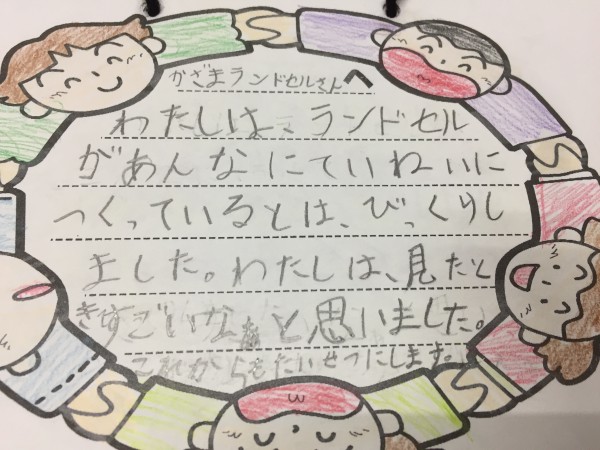 かざまランドセルさんへ
わたしは、ランドセル
があんなにていねいに
つくっているとは、びっくりし
ました。わたしは、見たと
きすごいなぁと思いました。
これからもたいせつにします。